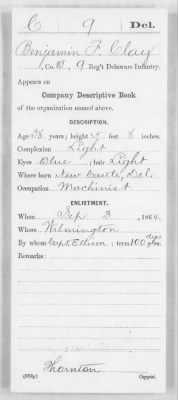 C 9 Del.
Benjamin F. Clay
Co. B, 9 Reg't Delaware Infantry.
Appears on
Company Descriptive Book
of the organization named above.
DESCRIPTION.
Age 28 years; height 5 feet 8 inches.
Complexion Light
Eyes Blue; hair Light
Where born New Castle, Del.
Occupation Machinist
ENLISTMENT.
When Sep 3, 1864.
Where Wilmington
By whom Capt. Ellison; term 100 days yrs.
Remarks:
Thornton
Copyist.